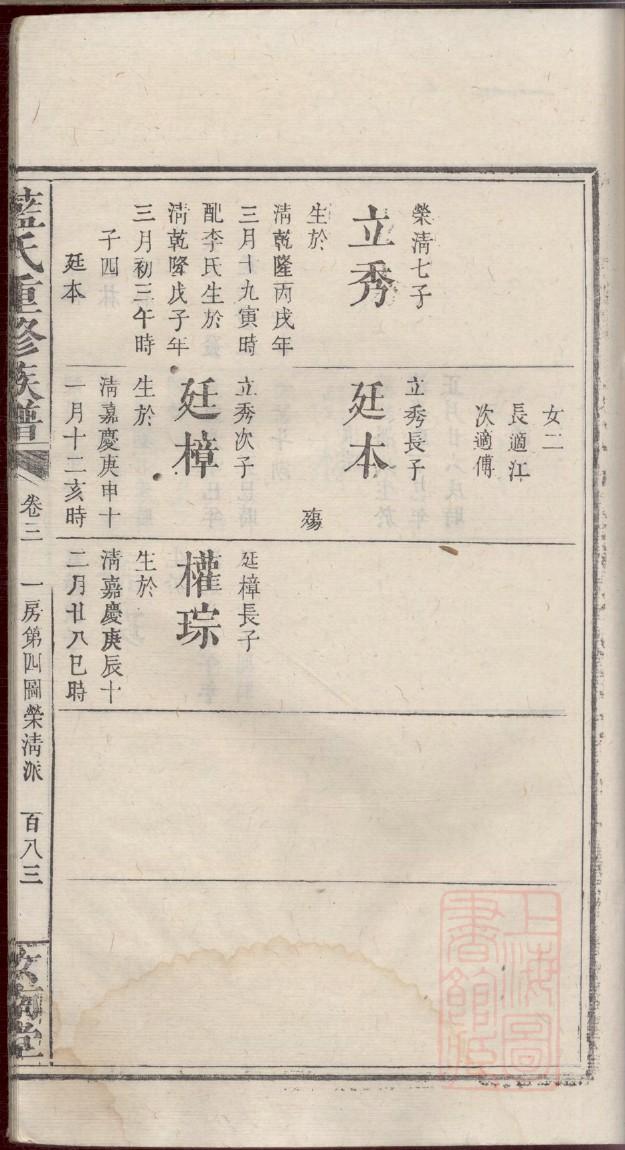 榮清七子
立秀
生於
清乾隆丙戌年
三月十九寅時
配李氏生於
清乾隆戊子年
三月初三午時
子四
廷本
女二
長適江
次適傅
立秀長子
廷本
殤
立秀次子
廷樟
生於
清嘉慶庚申十
一月十二亥時
廷樟長子
權琮
生於
清嘉慶庚辰十
二月廿八巳時
藍氏重修族譜
卷三
一房第四圖榮清派
百八三
上海圖書館藏